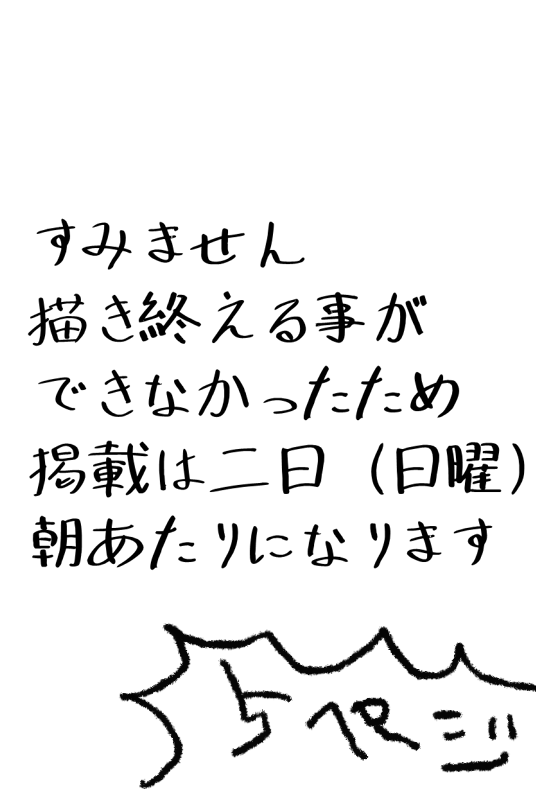 すみません
描き終える事が
できなかったため
掲載は二日（日曜）
朝あたりになります